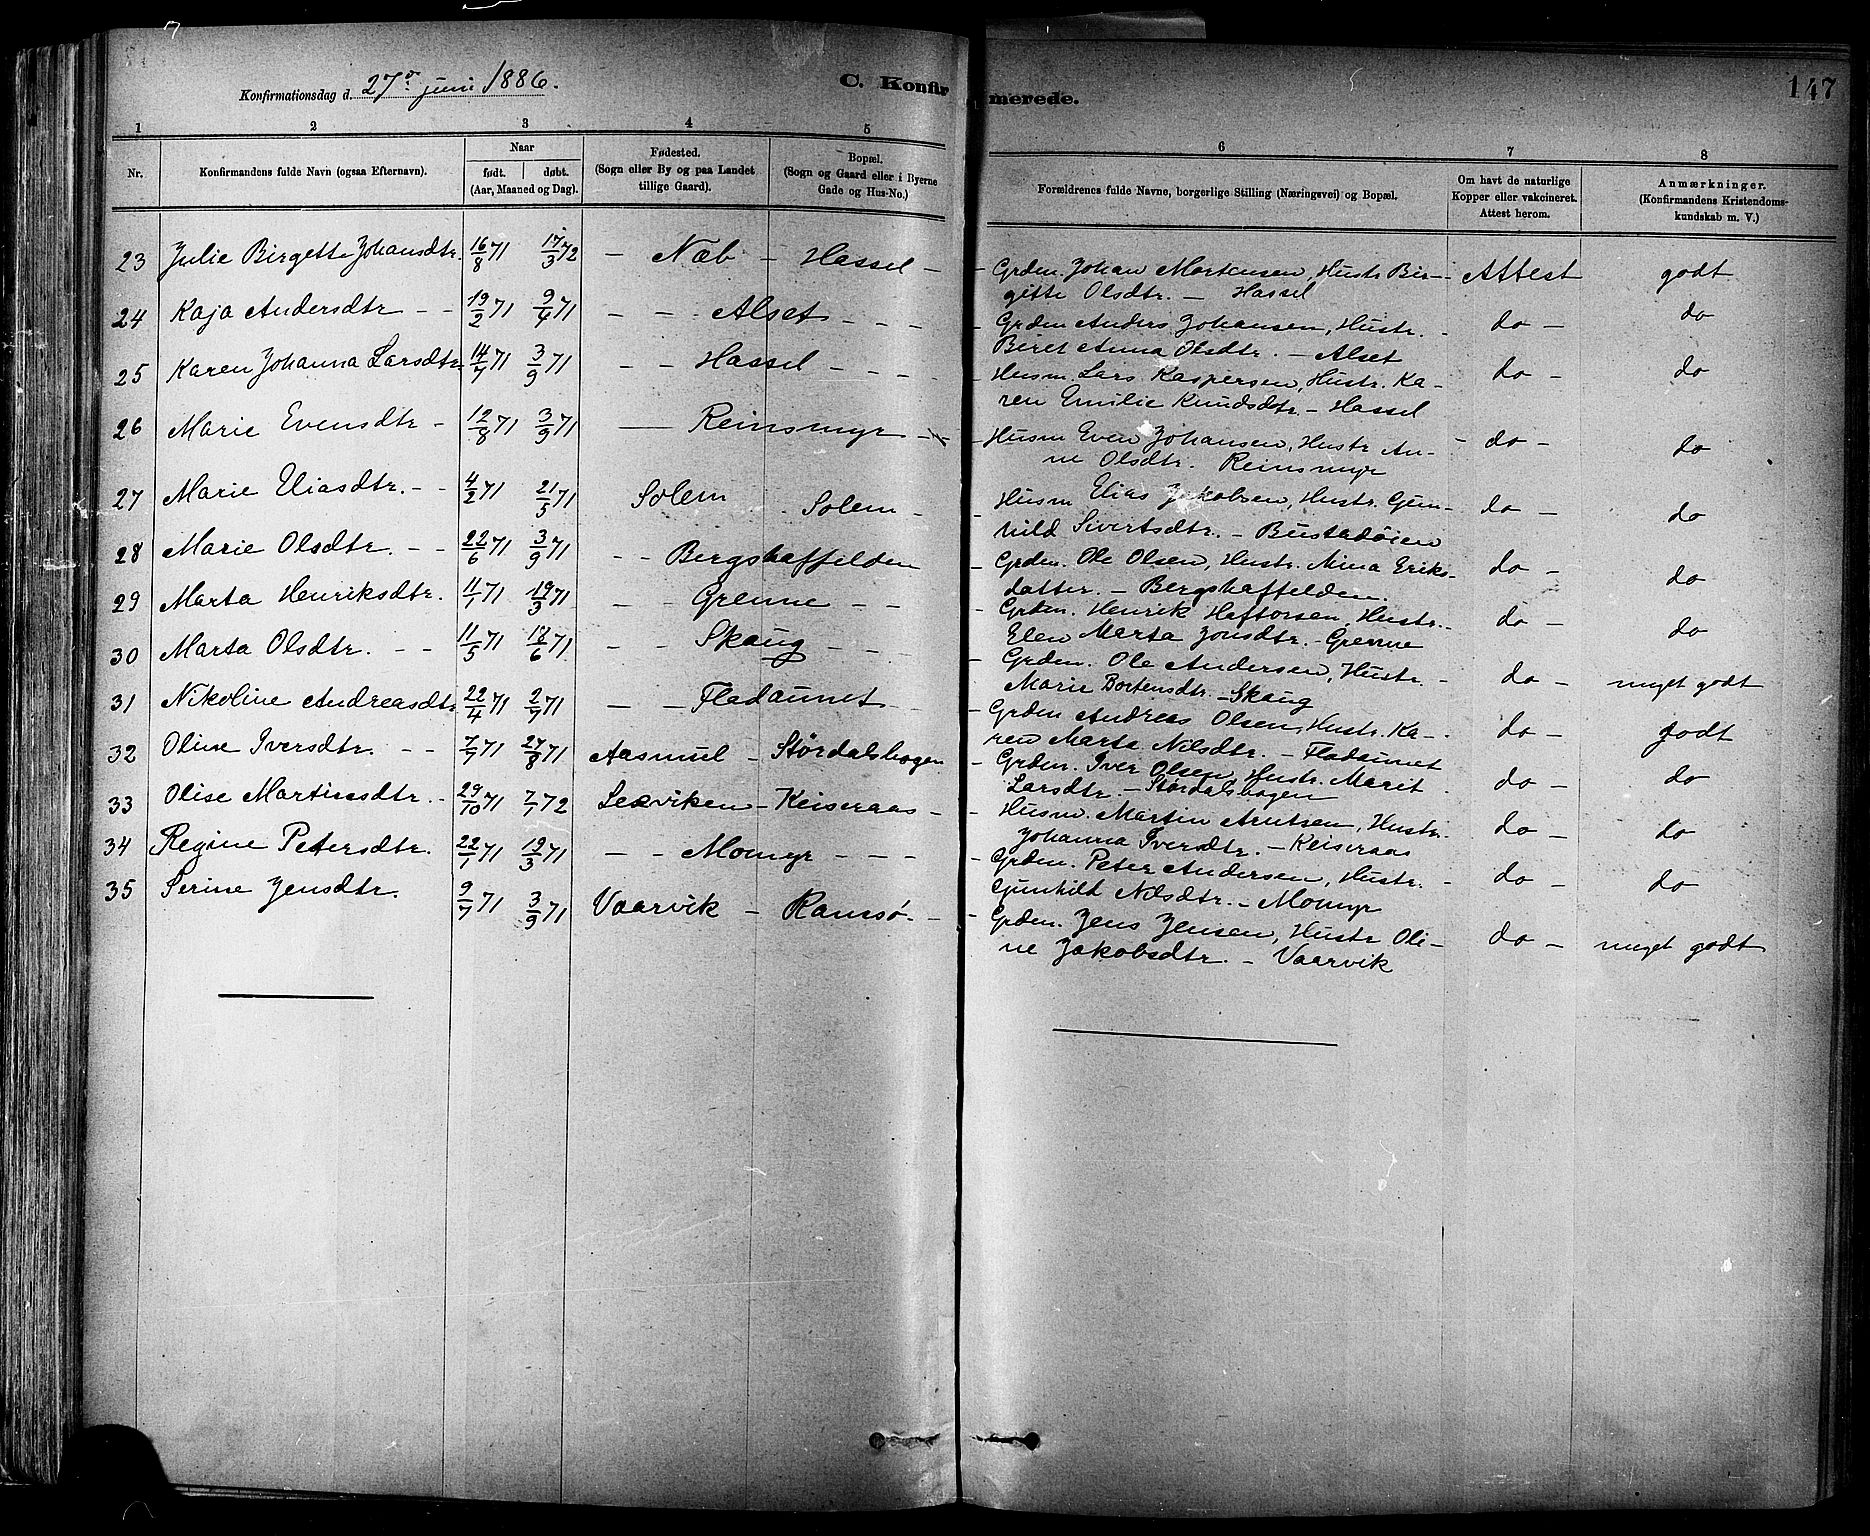 Konfirmationsdag d. 27de juni 1886.
C. Konfirmerede.
147
1 2 3 4 5 6 7 8
Nr.
Konfirmandens fulde Navn (ogsaa Efternavn).
Naar
født. døbt.
(Aar, Maaned og Dag).
Fødested.
(Sogn eller By og paa Landet
tillige Gaard).
Bopæl.
(Sogn og Gaard eller i Byerne
Gade og Hus-No.)
Forældrenes fulde Navne, borgerlige Stilling (Næringsvei) og Bopæl.
Om havt de naturlige
Kopper eller vakcineret.
Attest herom.
Anmærkninger.
(Konfirmandens Kristendoms-
kundskab m. V.)
23 Julie Birgette Johansdtr. 16/8 71 17/3 72 – Næb – Hassel –
Grden. Johan Mortensen, Hustr. Bir-
gitte Olsdtr. – Hassel
Attest godt
24 Kaja Andersdtr – – 19/2 71 9/4 71 – – Alset – – –
Grden Anders Johansen, Hustr.
Beret Anna Olsdtr. – Alset
do – do
25 Karen Johanna Larsdtr. 14/7 71 3/9 71 – – Hassel – – –
Husm. Lars Kaspersen, Hustr. Ka-
ren Emilie Knudsdtr. – Hassel
do – do
26 Marie Evensdtr – 12/8 71 3/9 71 – Reinsmyr –
Husm Even Johansen, Hustr An-
ne Olsdtr. Reinsmyr
– do – do
27 Marie Eliasdtr. – – 4/2 71 21/5 71 Solem Solem –
Husm Elias Jakobsen, Hustr. Gun-
hild Sivertsdtr. – Bustadöien
do – do
28 Marie Olsdtr. – – 22/6 71 3/9 71 – – Bergshaffelden
Grden. Ole Olsen, Hustr. Mina Eriks-
datter. – Bergshaffelden.
do – do
29 Marta Henriksdtr. 11/1 71 19/3 71 – – Grenne – –
Grden. Henrik Haftorsen, Hustr.
Elen Marta Jonsdtr. – Grenne
do – do
30 Marta Olsdtr. – – 11/5 71 18/6 71 – – Skaug – – –
Grden. Ole Andersen, Hustr.
Marie Bortensdtr. – Skaug
do – meget godt
31 Nikoline Andreasdtr 22/4 71 2/7 71 – – Fladaunet
Grden Andreas Olsen, Hustr. Ka-
ren Marta Nilsdtr. – Fladaunet
do – godt
32 Oline Iversdtr. – – 7/7 71 27/8 71 Aasmul – Stördalshagen
Grden. Iver Olsen, Hustr. Marit
Larsdtr. – Stördalshagen
do – do
33 Olise Martinsdtr. – 29/10 71 7/1 72 Lexviken – Keiseraas –
Husm. Martin Arntsen, Hustr.
Johanna Iversdtr. – Keiseraas
do – do
34 Regine Petersdtr. 22/1 71 19/3 71 – – Momyr – – –
Grden. Peter Andersen, Hustr.
Gunhild Nilsdtr. – Momyr
do – do
35 Serine Jensdtr. 9/7 71 3/9 71 Vaarvik – Ramsö. –
Grden. Jens Jensen, Hustr Oli-
ne Jakobsdtr. – Vaarvik
do – meget godt